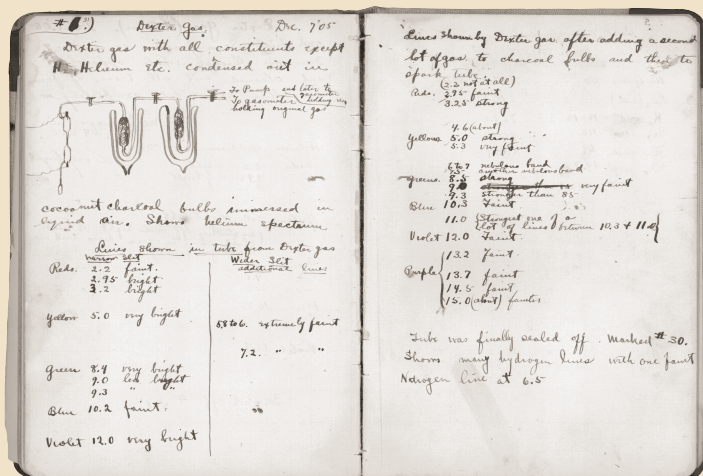 #6.) Dexter Gas. Dec. 7'05
Dexter gas with all constituents except
H., Helium Etc. condensed out in
To Pump and later to
To gasometer
holding original gas
cocoanut charcoal bulbs immersed in
liquid air. Shows helium spectrum
Lines shown in tube from Dexter gas
narrow slit
Reds. 2.2 faint.
2.95 bright
3.2 bright
Yellow 5.0 very bright
Green 8.4 very bright
9.0 less bright
9.3 " "
Blue 10.2 faint.
Violet 12.0 very bright
Wider Slit
additional lines
5.8 to 6. extremely faint
7.2. " "
Lines shown by Dexter gas after adding a second
lot of gas to charcoal bulbs and then to
spark tube.
(2.2 not at all)
Reds. 2.95 faint
3.25 strong
4.6 (about)
Yellows 5.0 strong
5.3 very faint
6 to 7 nebulous band
7.5 another nebulous band
Greens. 8.5 strong
9.0 very faint
9.3 stronger than 8.5
Blue 10.3 Faint
11.0 (Strongest one of a
lot of lines between 10.3 + 11.0)
Violet 12.0 Faint.
13.2 faint
Purple 13.7 faint
14.5 faint
15.0 (about) fainter
Tube was finally sealed off. Marked #30.
Shows many hydrogen lines with one faint
Nitrogen line at 6.5